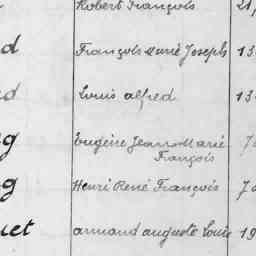 Robert François 21
d François Marie Joseph 13
d Louis alfred 13
g Eugène Jean-Marie
François
g Henri René François
uet armand auguste Louis 19